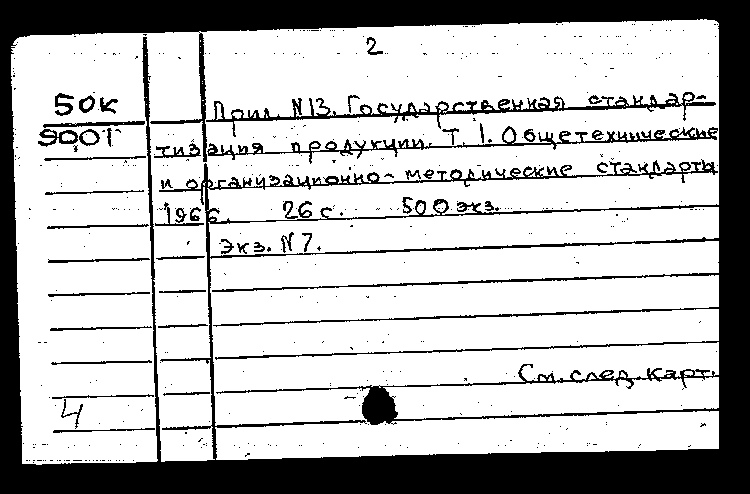 2
50к
900Т
Прил. N13. Государственная стандар-
тизация продукции. Т. 1. Общетехнические
и организационно-методические стандарты
1966. 26 с. 500 экз.
Экз. N 7.
См. след. карт.
4